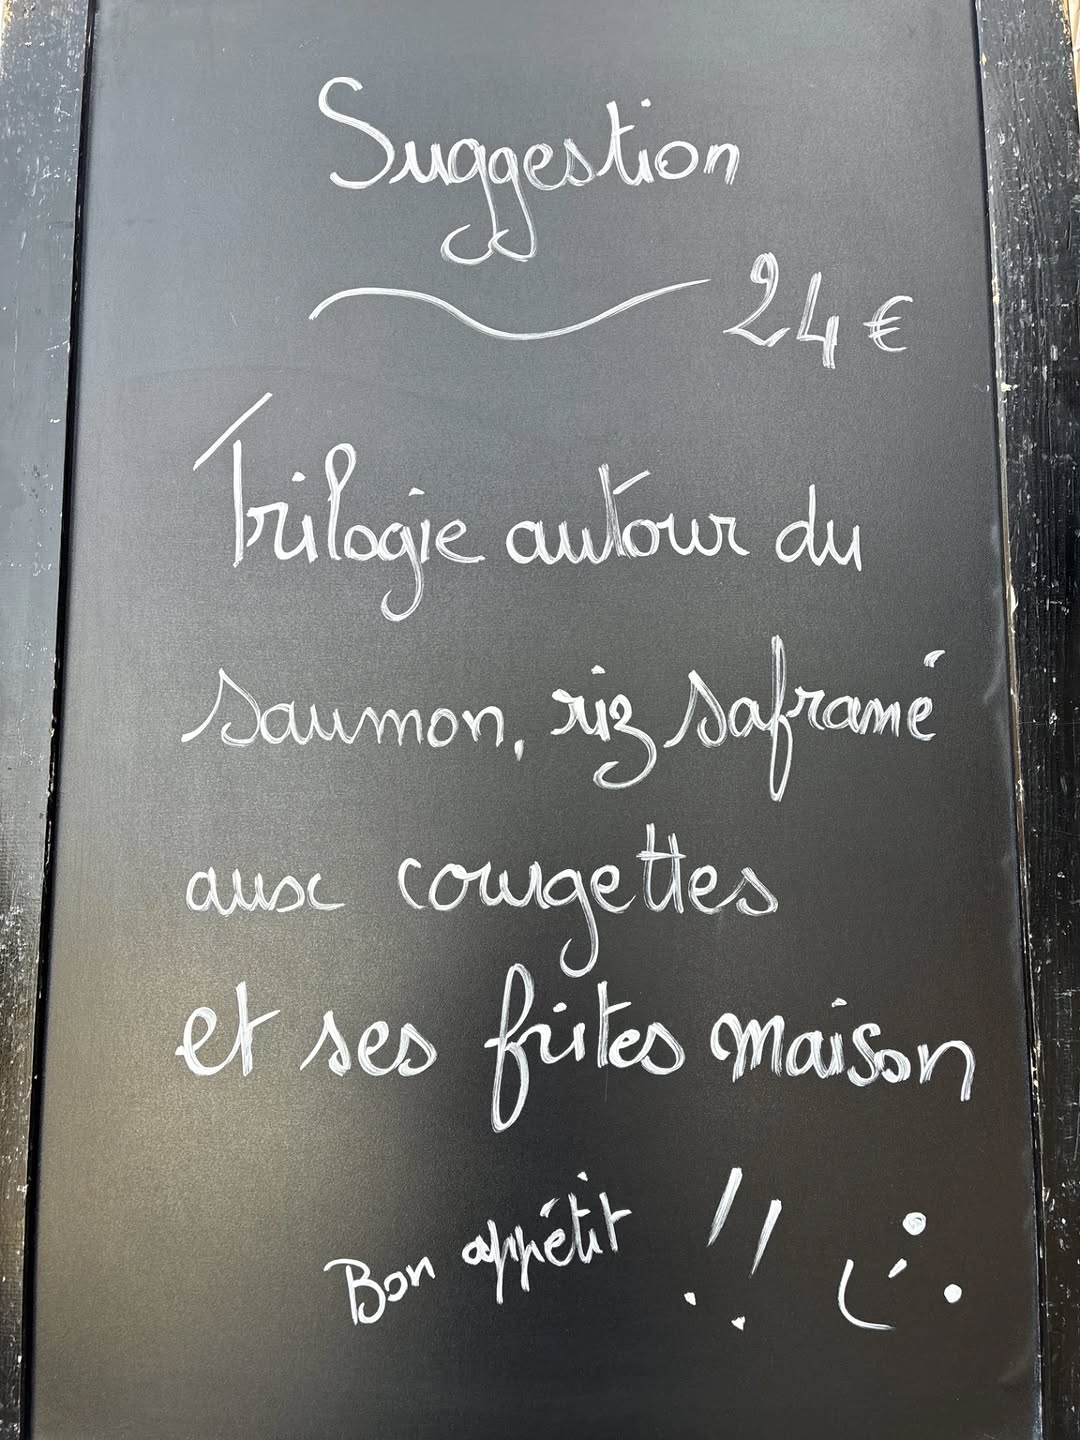 Suggestion
24 €
Trilogie autour du
saumon, riz safrané
aux courgettes
et ses frites maison
Bon appétit !!